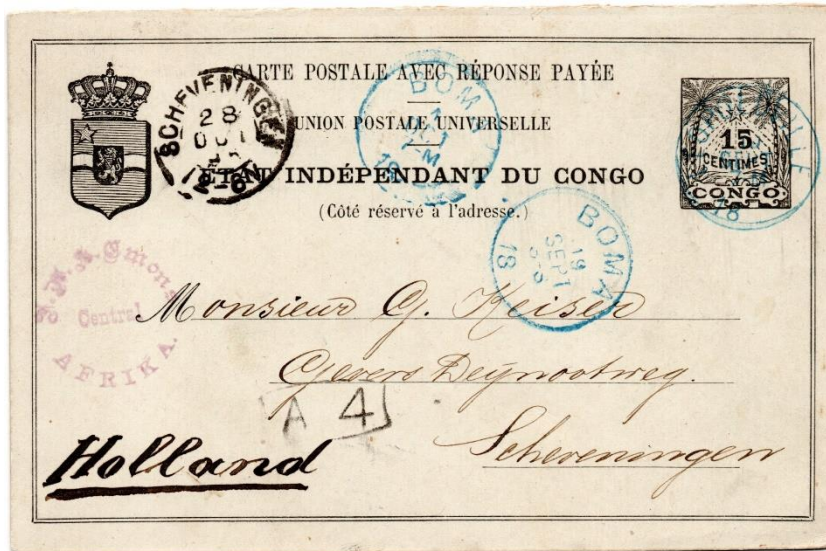 CARTE POSTALE AVEC RÉPONSE PAYÉE
UNION POSTALE UNIVERSELLE
ÉTAT INDÉPENDANT DU CONGO
(Côté réservé à l'adresse.)
15
CENTIMES
CONGO
SCHEVENINGEN
28
BOMA
BOMA
19
SEPT
18
Central
AFRIKA.
Monsieur G. Keiser
Gevers Deynootweg.
A 4
Scheveningen
Holland